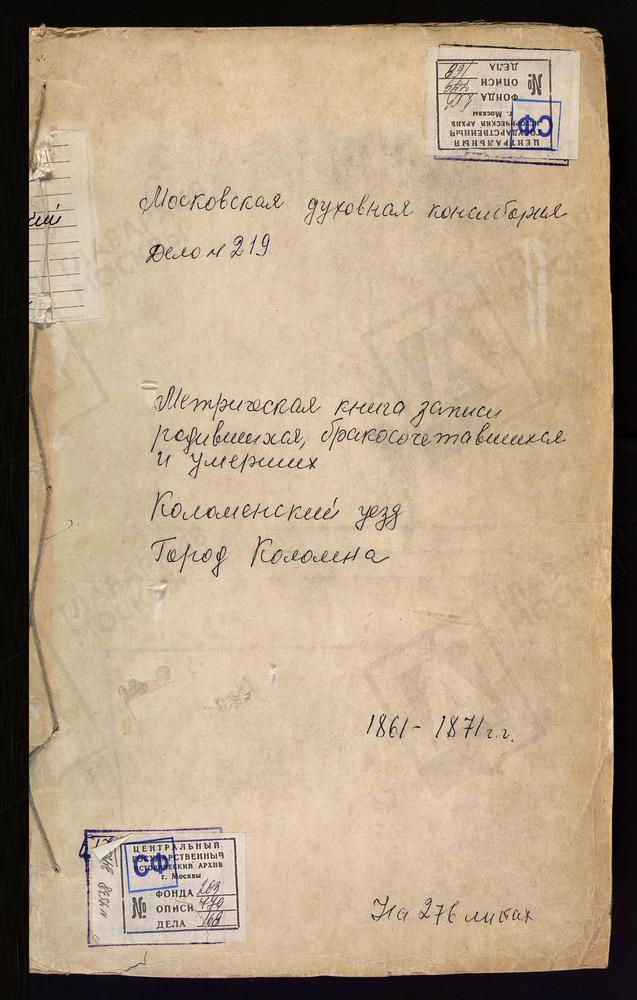 ЦЕНТРАЛЬНЫЙ
ГОСУДАРСТВЕННЫЙ
ИСТОРИЧЕСКИЙ АРХИВ
г. Москвы
ФОНДА 203
№ ОПИСИ
ДЕЛА 168
СФ
Московская духовная консистория
Дело № 219
Метрическая книга записи
родившихся, бракосочетавшихся
и умерших
Коломенский уезд
Город Коломна
1861 - 1871 г.г.
ЦЕНТРАЛЬНЫЙ
ГОСУДАРСТВЕННЫЙ
ИСТОРИЧЕСКИЙ АРХИВ
г. Москвы
ФОНДА 203
№ ОПИСИ
ДЕЛА 168
СФ
На 276 листах
ГЛАВАРХИВ
МОСКВЫ